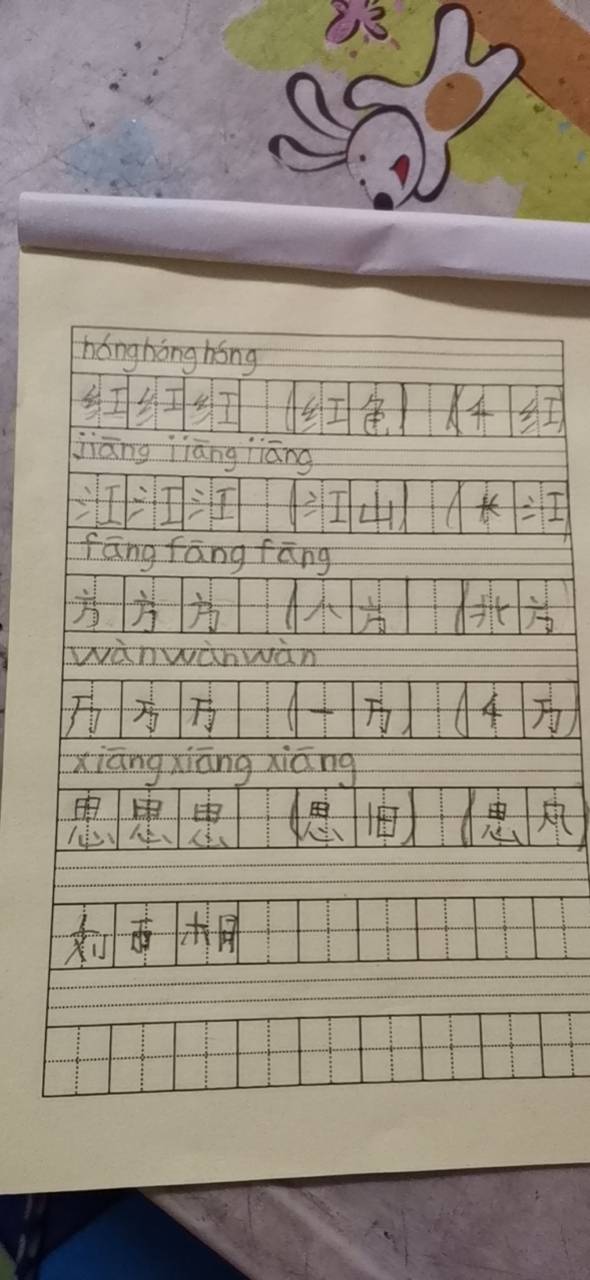 hónghónghóng
红红红（红色）（千红
jiāng jiāng jiāng
江江江（江山）（长江
fāng fāng fāng
方方方（八方（北方
wànwànwàn
万万万（一万）（千万）
xiāngxiāng xiāng
思思思（思旧）（思凡
刘雨相